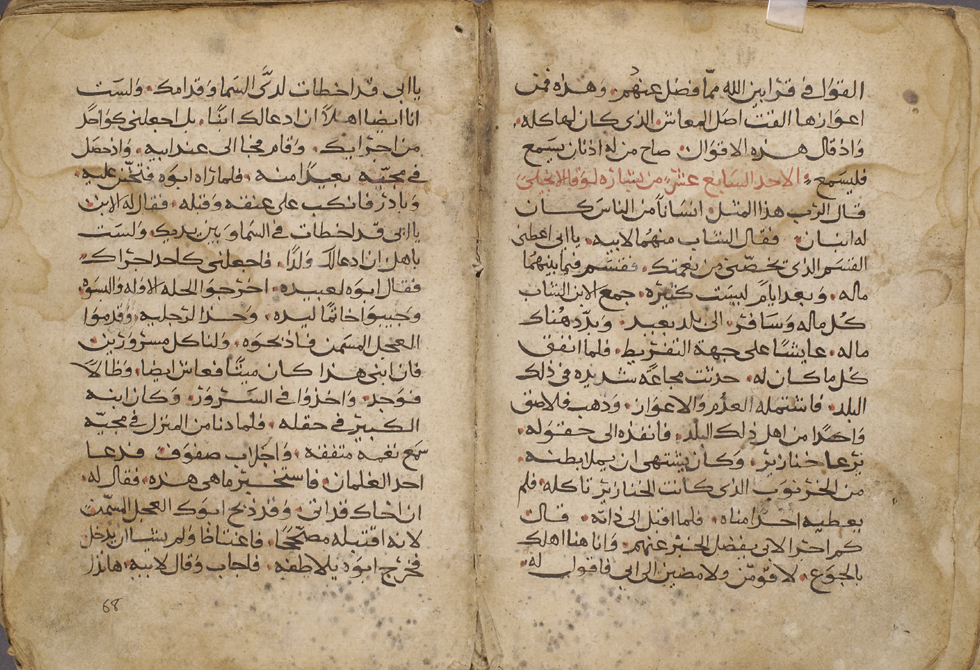 القول في قرابين الله مما فضل عنهم. وهذه فمن
اعوازها القت اصل المعاش الذي كان لها كله.
واذ قال هذه الاقوال صاح من له اذنان يسمع
فليسمع الاحد السابع عشر من بشارة لوقا الانجلي
قال الرب هذا المثل. انسانا من الناس كان
له ابنان. فقال الشاب منهما لابيه. يا ابي اعطني
القسم الذي تخصني من نعمتك. فقسم فيما بينهما
ماله. وبعد ايام ليست كثيره. جمع الابن الشاب
كل ماله وسافر. الى بلد بعيد. وبدد هناك
ماله. عايشا على جهة التفريط. فلما انفق
كل ما كان له. حدثت مجاعه شديده في ذلك
البلد. فاشتمله العدم والاعوان. وذهب فلاصق
واحدا من اهل ذلك البلد. فانفذه الى حقوله.
يرعا خنازير. وكان يشتهي ان يملا بطنه.
من الخرنوب الذي كانت الخنازير تاكله. فلم
يعطيه احدا مناه. فلما اقبل الى ذاته. قال
كم اجرا لابي يفضل الخبز عنهم. وانا هنا اهلك
بالجوع. لاقومن ولامضين الى ابي فاقول له.
يا ابي قد اخطات لدى السما وقدامك. ولست
انا ايضا اهلا ان ادعا لك ابنا. بل اجعلني كواحد
من اجرايك. وقام مجا الى عند ابيه. واذ حصل
في مجيه بعيدا منه. فلما راه ابوه فتحنن عليه.
وبادر فانكب على عنقه وقبله. فقال له الابن.
يا ابي قد اخطات في السما وبين يديك. ولست
باهل ان ادعا لك ولدا. فاجعلني كاحد اجراك
فقال ابوه لعبيده. اخرجوا الحله الاوله والبسوه.
وجيبوا خاتما ليده. وحدا لرجليه. وقدموا
العجل المسمن فاذبحوه. ولناكل مسرورين.
فان ابني هذا كان ميتا فعاش ايضا. وظالا
فوجد. واخذوا في السرور. وكان ابنه
الكبير في حقله. فلما دنا من المنزل في مجيه
سمع نغمه متفقه. واجلاب صفوف. فدعا
احد الغلمان. فاستخبر ما هي هذه. فقال له.
ان اخاك قد اتى. وقد ذبح ابوك العجل المسمن
لانه اقتبله مصححا. فاغتاظ ولم يشا ان يدخل
فخرج ابوه يلاطفه. فاجاب وقال لابيه. هانذا
68